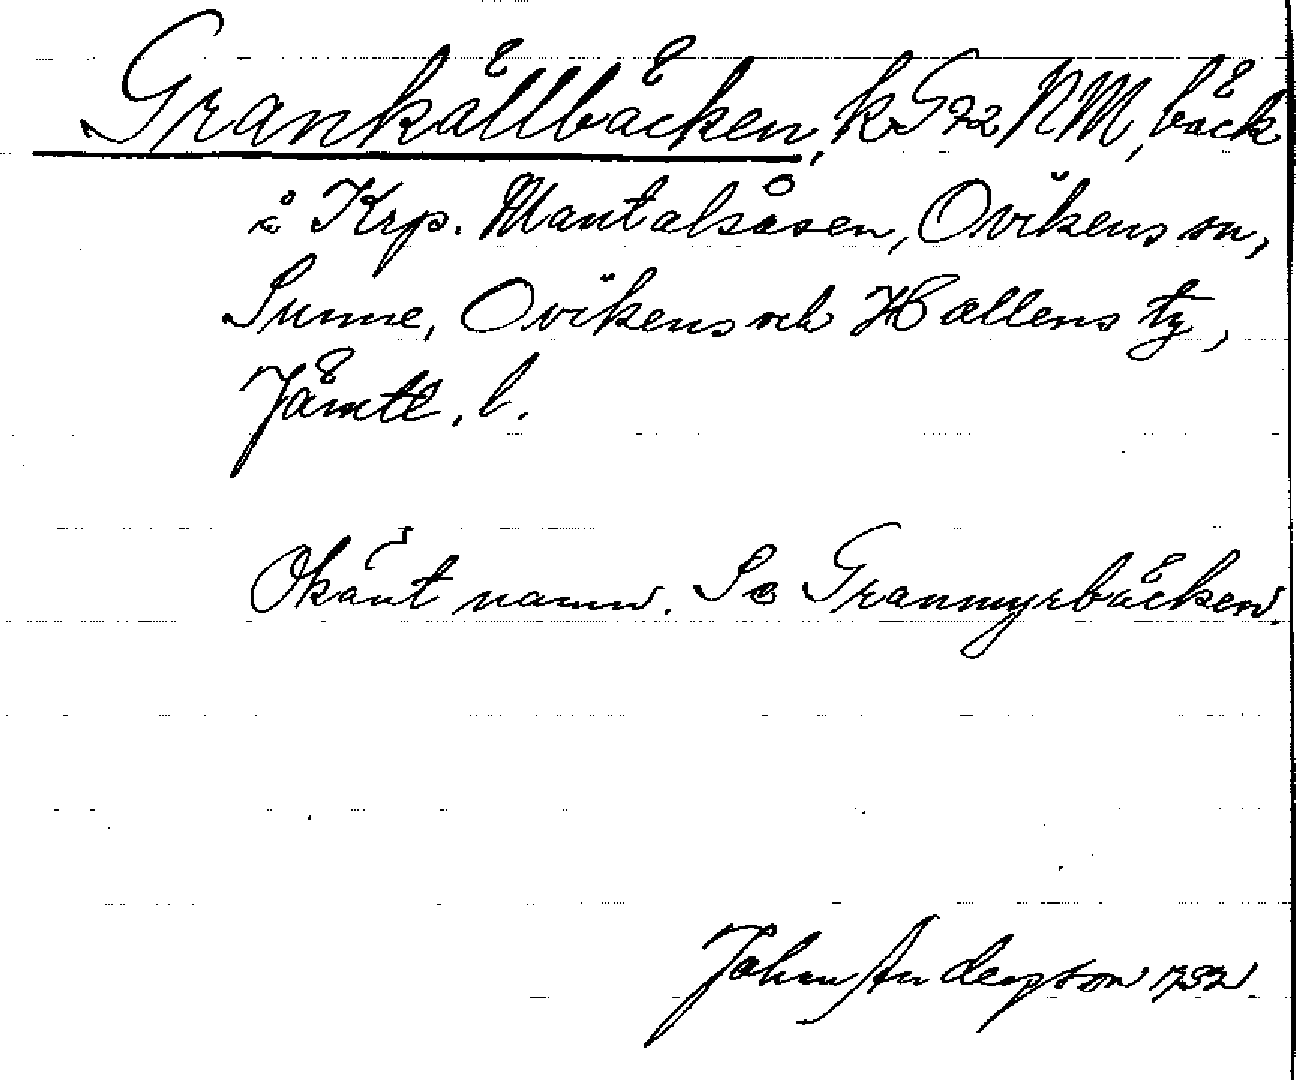 Grankällbäcken, kG 72 NM, bäck
i Krp. Mantalsåsen, Ovikens sn,
Sunne, Ovikens och Hallens tg,
Jämtl. l.
Okänt namn. Se Granmyrbäcken.
John Anderson 1932.